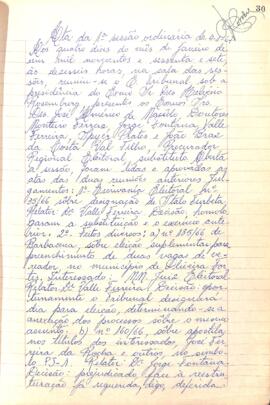 30
Ata da 1ª sessão ordinária de
Aos quatro dias do mês de janeiro de
um mil novecentos e sessenta e sete,
às dezesseis horas, na sala das ses-
sões, reuniu-se o Tribunal, sob a
presidência do Exmo. Sr. Des.
presentes os Exmos. Srs.
Drs. José Américo de Macêdo, Doutores
Monteiro Ferraz, Jorge Fontana, Valle
Ferreira, e João Braz
da Costa Val Filho, Procurador
Regional Eleitoral, substituto. Aberta
a sessão, foram lidas e aprovadas as
atas das duas reuniões anteriores. Jul-
gamentos: 1º Escrivania Eleitoral nº
/66 sobre designação de Ítalo
Relator Dr. Valle Ferreira. Decisão: homolo-
garam a substituição e o exercício ante-
rior. 2º Feitos diversos: a) nº 155/66 de
Barbacena, sobre eleição suplementar para
preenchimento de duas vagas de ve-
reador no município de Oliveira For-
tes. Interessado: MM. Juiz Eleitoral.
Relator Dr. Valle Ferreira. Decisão: opor-
tunamente o Tribunal designará
dia para eleição, determinando-se a
anexação dos processos sobre o mesmo
assunto. b) nº 160/66, sobre apostila
nos títulos dos interessados, José Fer-
reira da Rocha e outros, no símbo-
lo PJ-1. Relator Dr. Jorge Fontana.
Decisão: prejudicado, face à restru-
turação já sugerida, digo, deferida